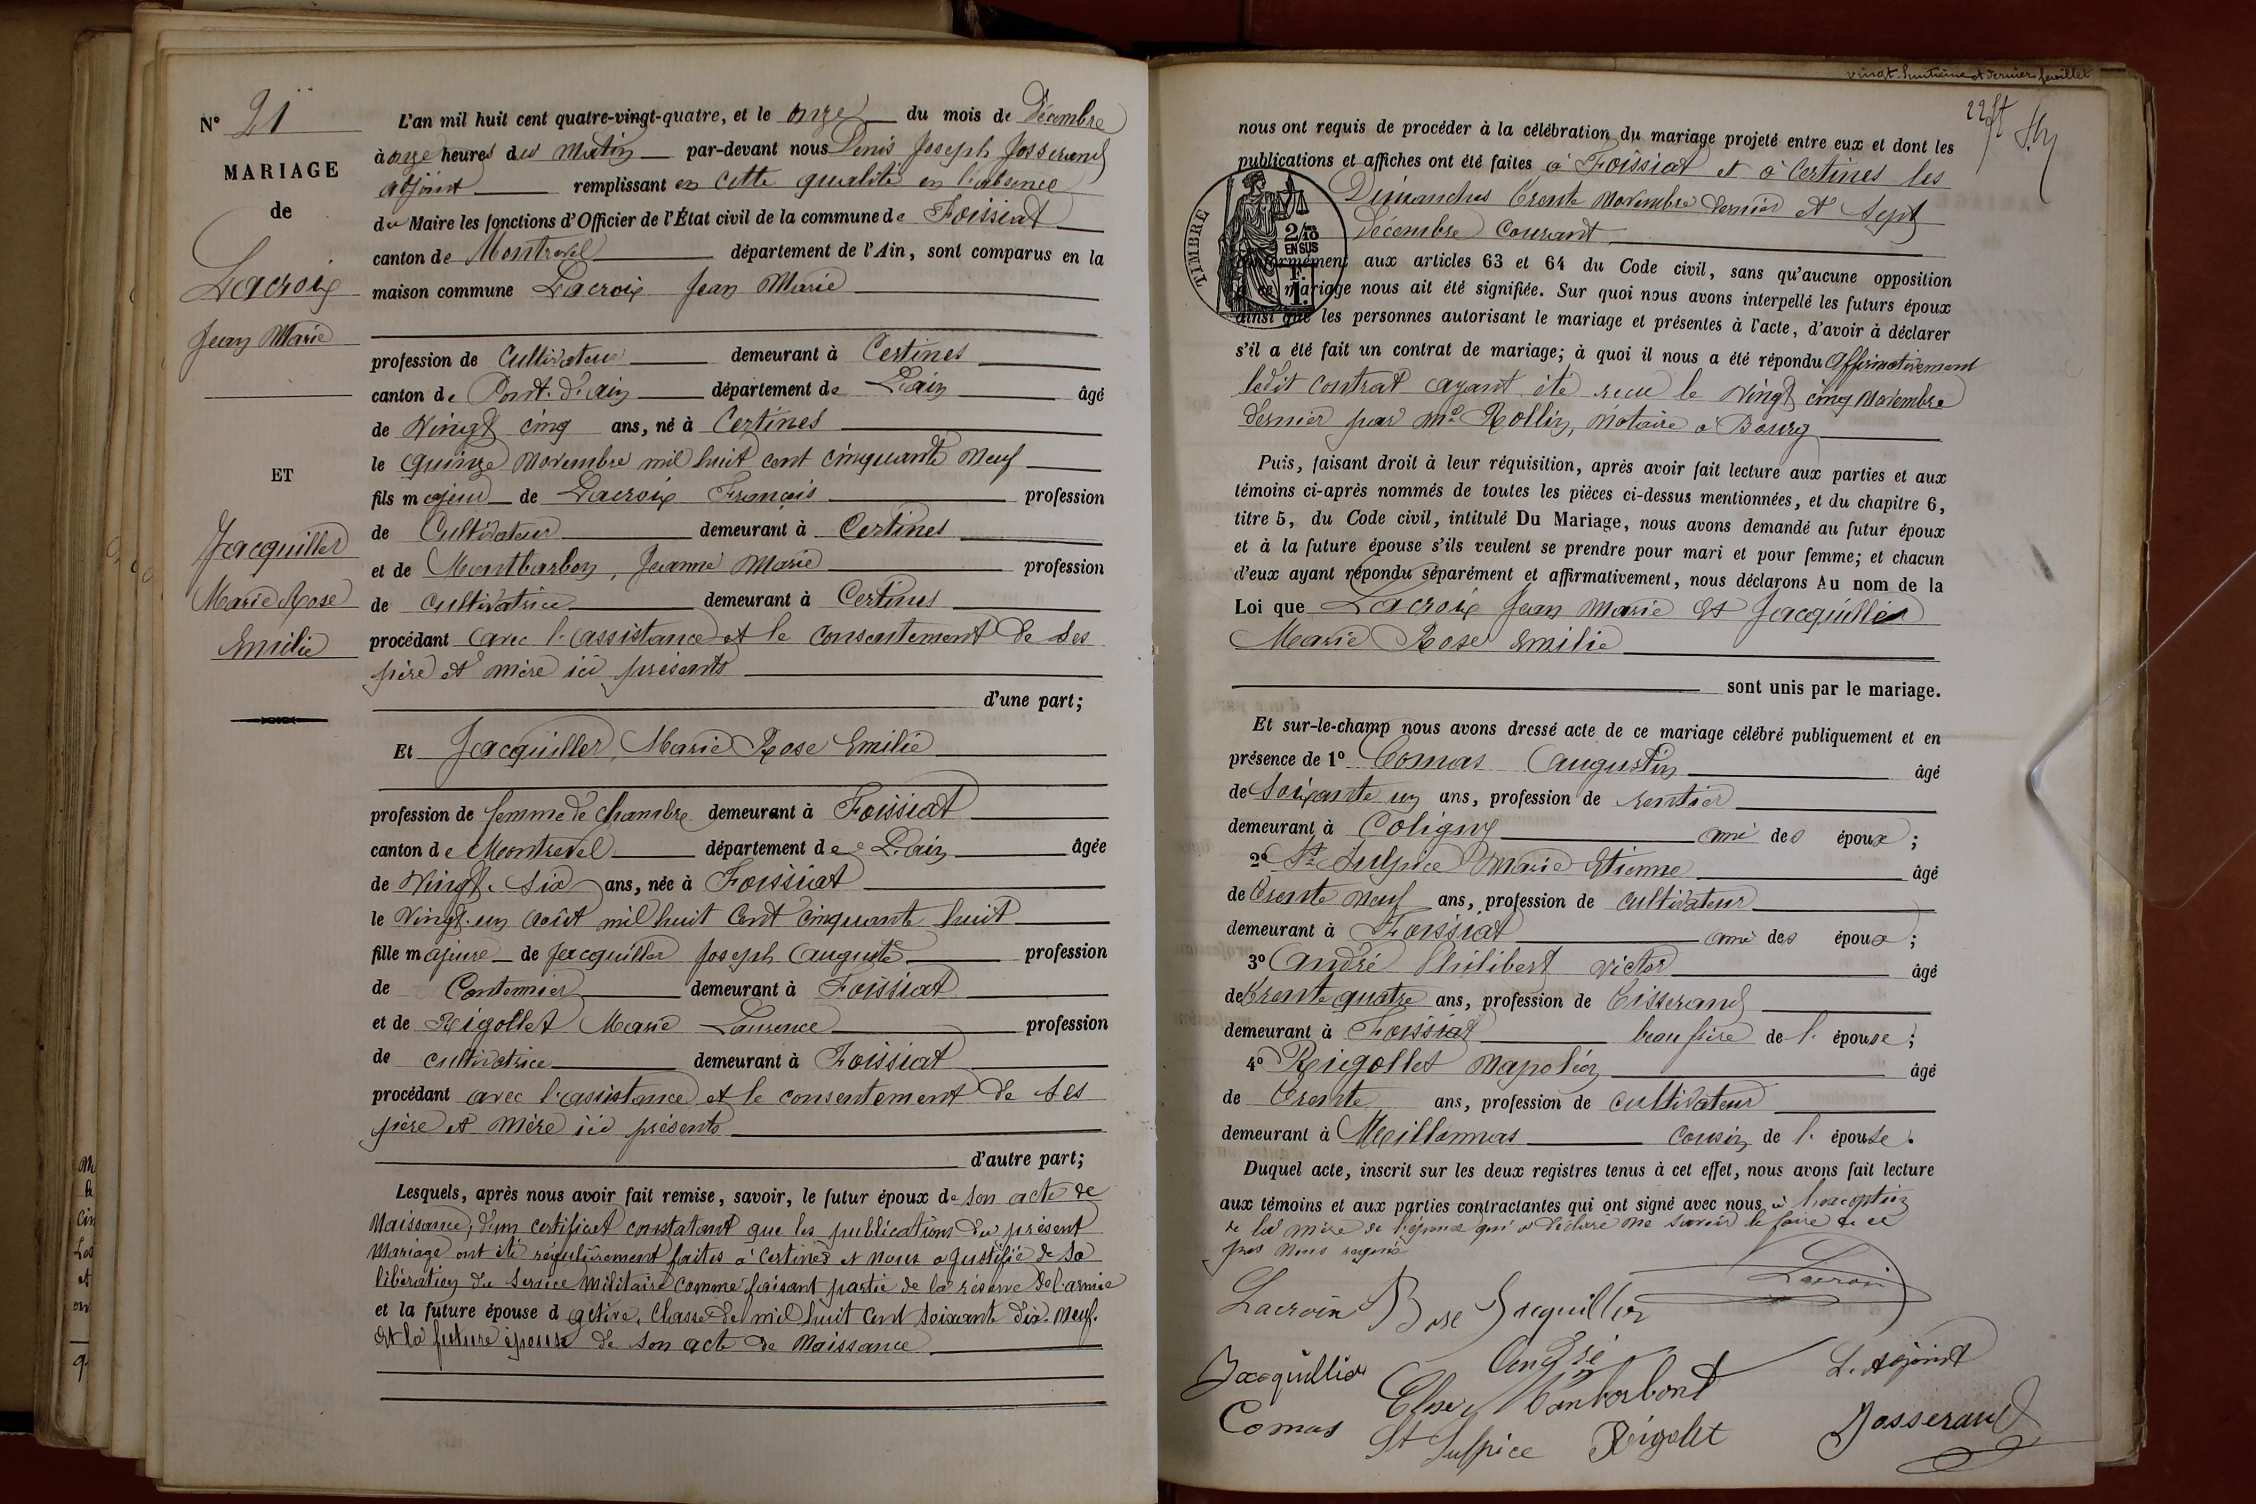 N° 21
MARIAGE
de
Lacroix
Jean Marie
ET
Jacquiller
Marie Rose
Emilie
L'an mil huit cent quatre-vingt-quatre, et le onze du mois de Décembre
à onze heures du Matin par-devant nous Denis Joseph Josserand
adjoint remplissant en cette qualité en l'absence
du Maire les fonctions d'Officier de l'État civil de la commune de Foissiat
canton de Montrevel département de l'Ain, sont comparus en la
maison commune Lacroix Jean Marie
profession de Cultivateur demeurant à Certines
canton de Pont-d'ain département de L'ain âgé
de Vingt cinq ans, né à Certines
le quinze Novembre mil huit cent cinquante neuf
fils majeur de Lacroix François profession
de Cultivateur demeurant à Certines
et de Montbarbon, Jeanne Marie profession
de cultivatrice demeurant à Certines
procédant avec l'assistance et le consentement de ses
père et mère ici présents
d'une part;
Et Jacquiller Marie Rose Emilie
profession de femme de chambre demeurant à Foissiat
canton de Montrevel département de L'ain âgée
de Vingt-six ans, née à Foissiat
le Vingt-un août mil huit cent cinquante huit
fille majeure de Jacquiller Joseph Auguste profession
de Cantonnier demeurant à Foissiat
et de Rigollet Marie Laurence profession
de cultivatrice demeurant à Foissiat
procédant avec l'assistance et le consentement de ses
père et mère ici présents
d'autre part;
Lesquels, après nous avoir fait remise, savoir, le futur époux de son acte de
Naissance, d'un certificat constatant que les publications du présent
Mariage ont été régulièrement faites à Certines et nous a justifié de sa
libération du service militaire comme faisant partie de la réserve de l'armée
et la future épouse d active, Classe de mil huit cent soixante dix-neuf.
Et la future épouse de son acte de Naissance
vingt-huitième et dernier feuillet
nous ont requis de procéder à la célébration du mariage projeté entre eux et dont les
publications et affiches ont été faites à Foissiat et à Certines les
Dimanches trente Novembre dernier et sept
Décembre Courant
TIMBRE
2/10
EN SUS
conformément aux articles 63 et 64 du Code civil, sans qu'aucune opposition
à ce mariage nous ait été signifiée. Sur quoi nous avons interpellé les futurs époux
ainsi que les personnes autorisant le mariage et présentes à l'acte, d'avoir à déclarer
s'il a été fait un contrat de mariage; à quoi il nous a été répondu Affirmativement
ledit contrat ayant été reçu le Vingt cinq Novembre
dernier par Me Rollin, Notaire à Bourg
Puis, faisant droit à leur réquisition, après avoir fait lecture aux parties et aux
témoins ci-après nommés de toutes les pièces ci-dessus mentionnées, et du chapitre 6,
titre 5, du Code civil, intitulé Du Mariage, nous avons demandé au futur époux
et à la future épouse s'ils veulent se prendre pour mari et pour femme; et chacun
d'eux ayant répondu séparément et affirmativement, nous déclarons Au nom de la
Loi que Lacroix Jean Marie et Jacquillier
Marie Rose Emilie
sont unis par le mariage.
Et sur-le-champ nous avons dressé acte de ce mariage célébré publiquement et en
présence de 1° Comas Augustin âgé
de Soixante un ans, profession de rentier
demeurant à Coligny ami des époux;
2° St Sulpice Marie Etienne âgé
de Trente neuf ans, profession de cultivateur
demeurant à Foissiat ami des époux;
3° André Philibert Victor âgé
de Trente quatre ans, profession de Tisserand
demeurant à Foissiat beau frère de l'épouse;
4° Rigollet Napoléon âgé
de Trente ans, profession de cultivateur
demeurant à Meillonnas cousin de l'épouse.
Duquel acte, inscrit sur les deux registres tenus à cet effet, nous avons fait lecture
aux témoins et aux parties contractantes qui ont signé avec nous à l'exception
de la mère de l'épouse qui a déclaré ne savoir le faire de ce
Lacroix Rose Jacquillier Lacroix
Jacquillier André L. Adjoint
Comas St Sulpice Rigolet Josserand